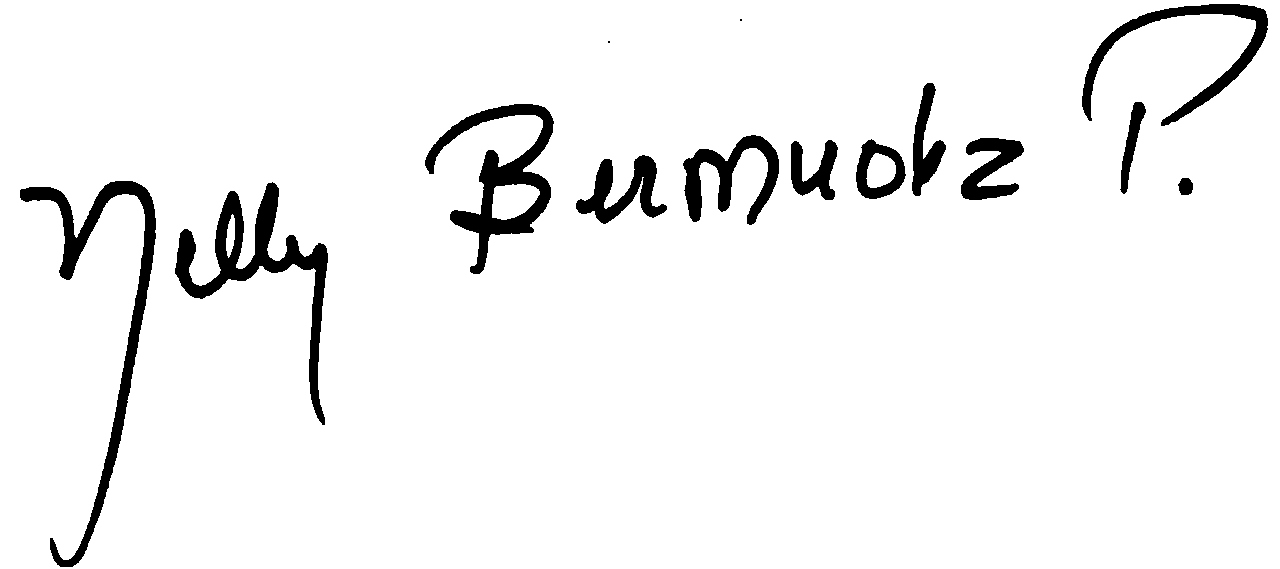 Nelly Bermudez P.